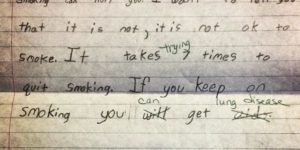 can you. I
that it is not, it is not ok to
trying
smoke. It takes 7 times to
quit smoking. If you keep on
can lung disease
smoking you will get